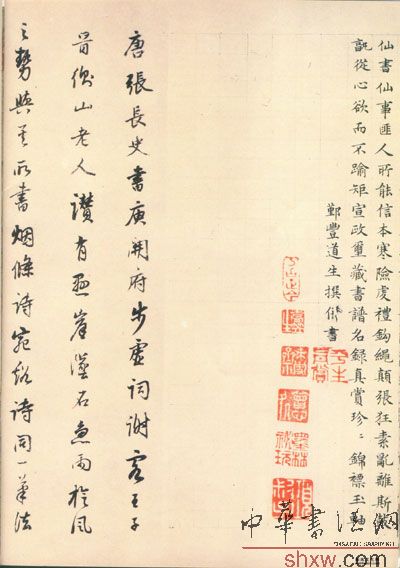 仙書仙事匪人所能信本寒險虔禮鈎繩顛張狂素亂雜斯
從心欲而不踰矩宣政璽藏書譜名錄真賞珍〻錦褾玉軸
鄞豐道生撰併書
唐張長史書庾開府步虛詞謝客王子
晉衡山老人讚有懸崖墜石急雨旋風
之勢與其所書烟條詩宛谿詩同一筆法
中華書法網
shxw.com